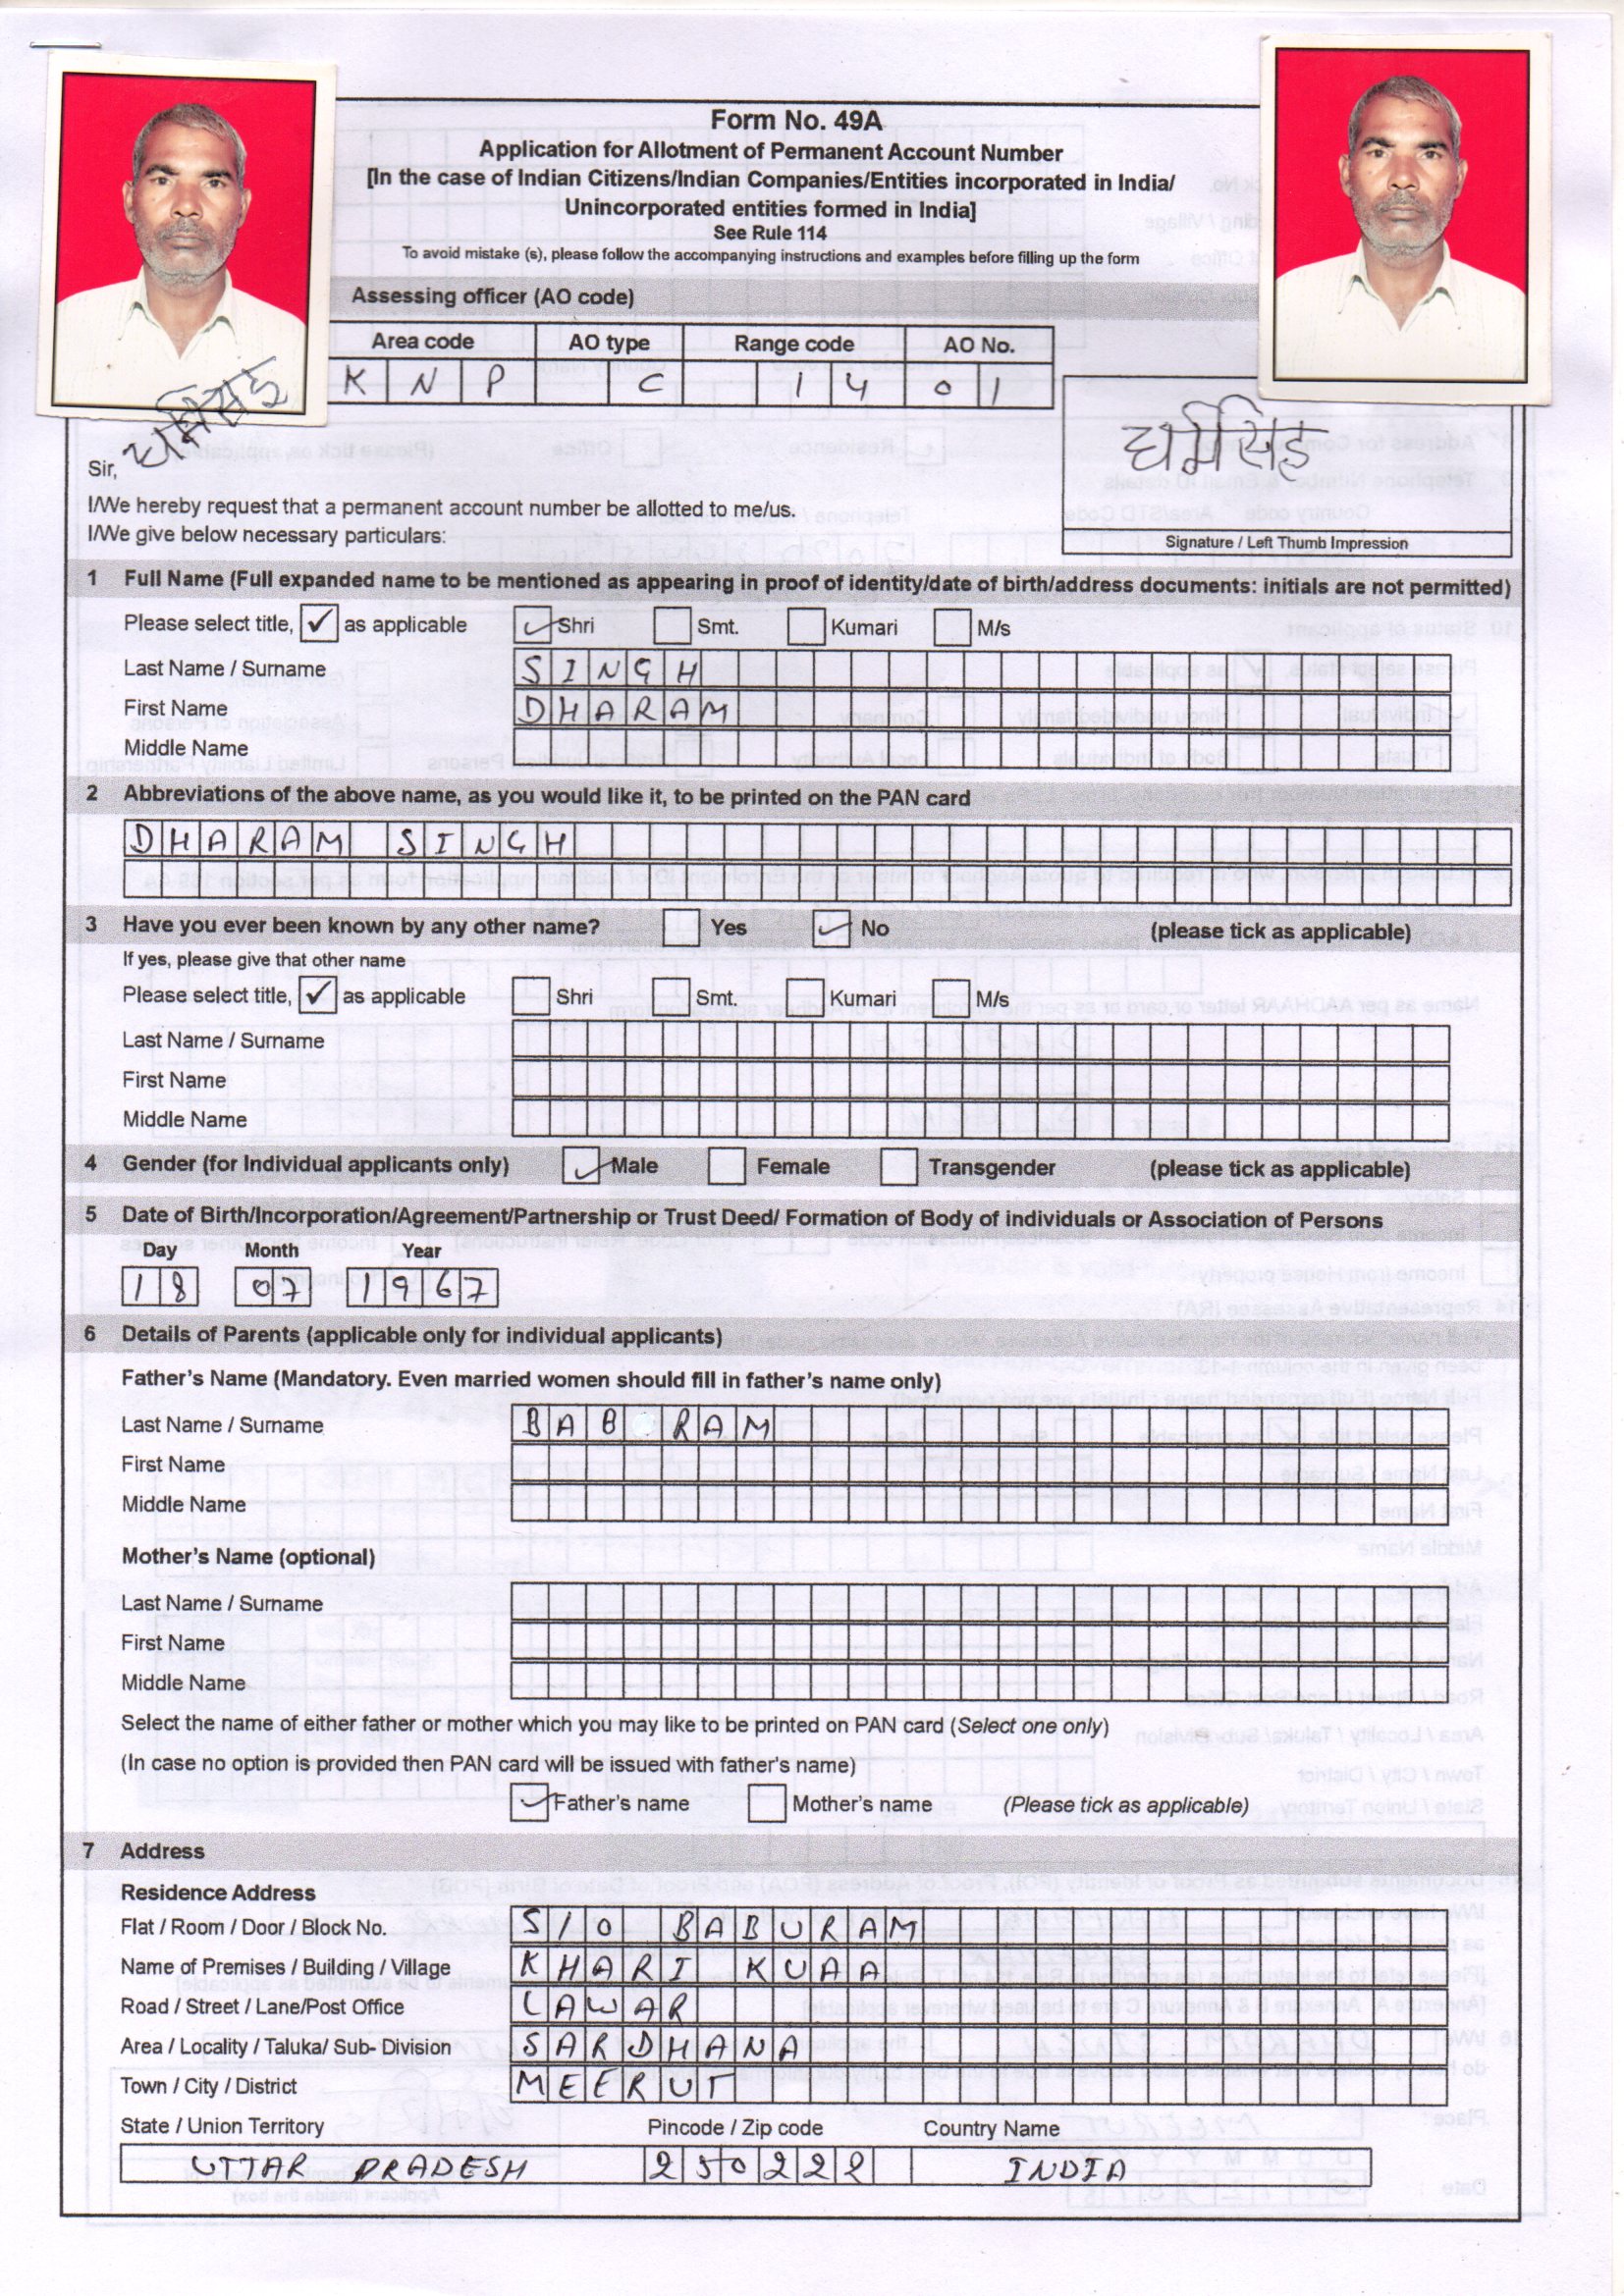 Form No. 49A
Application for Allotment of Permanent Account Number
[In the case of Indian Citizens/Indian Companies/Entities incorporated in India/
Unincorporated entities formed in India]
See Rule 114
To avoid mistake (s), please follow the accompanying instructions and examples before filling up the form
Assessing officer (AO code)
Area code AO type Range code AO No.
K N P C 1 4 0 1
धर्मसिंह
धर्मसिंह
Sir,
I/We hereby request that a permanent account number be allotted to me/us.
I/We give below necessary particulars:
Signature / Left Thumb Impression
1 Full Name (Full expanded name to be mentioned as appearing in proof of identity/date of birth/address documents: initials are not permitted)
Please select title, ✓ as applicable ✓ Shri Smt. Kumari M/s
Last Name / Surname SINGH
First Name DHARAM
Middle Name
2 Abbreviations of the above name, as you would like it, to be printed on the PAN card
DHARAM SINGH
3 Have you ever been known by any other name? Yes ✓ No (please tick as applicable)
If yes, please give that other name
Please select title, ✓ as applicable Shri Smt. Kumari M/s
Last Name / Surname
First Name
Middle Name
4 Gender (for Individual applicants only) ✓ Male Female Transgender (please tick as applicable)
5 Date of Birth/Incorporation/Agreement/Partnership or Trust Deed/ Formation of Body of individuals or Association of Persons
Day Month Year
18 07 1967
6 Details of Parents (applicable only for individual applicants)
Father's Name (Mandatory. Even married women should fill in father's name only)
Last Name / Surname BAB RAM
First Name
Middle Name
Mother's Name (optional)
Last Name / Surname
First Name
Middle Name
Select the name of either father or mother which you may like to be printed on PAN card (Select one only)
(In case no option is provided then PAN card will be issued with father's name)
✓ Father's name Mother's name (Please tick as applicable)
7 Address
Residence Address
Flat / Room / Door / Block No. S/O BABURAM
Name of Premises / Building / Village KHARI KUAA
Road / Street / Lane/Post Office LAWAR
Area / Locality / Taluka/ Sub- Division SARDHANA
Town / City / District MEERUT
State / Union Territory Pincode / Zip code Country Name
UTTAR PRADESH 250222 INDIA